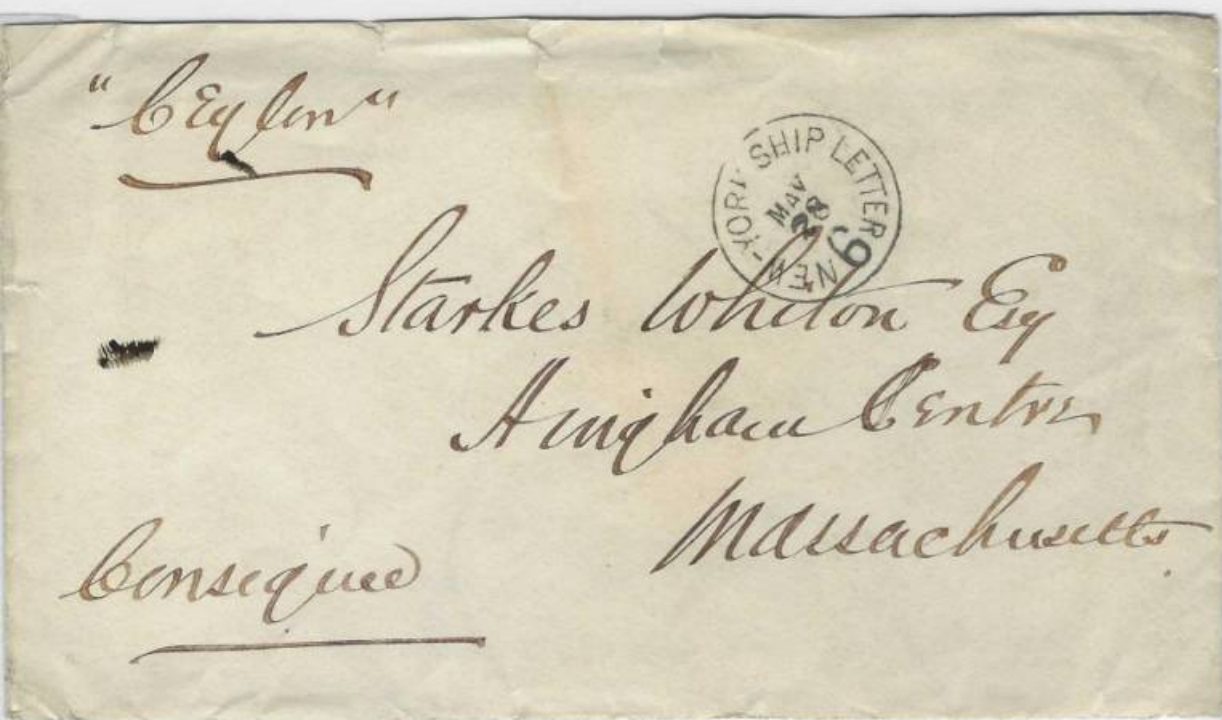 "Ceylon"
NEW-YORK SHIP LETTER
MAY
28
6
Starkes Whiton Esq
Hingham Centre
Massachusetts
Consignee